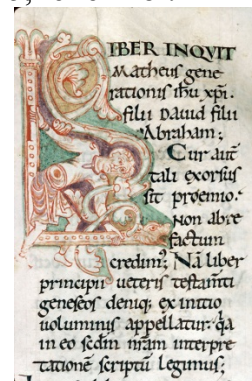 LIBER INQVIT
Matheus gene-
rationis ihu xpi.
filii David filii
Abraham;
Cur aut̄
tali exorsus
sit proemio.
Non abre
factum
credim; Nā liber
principii ueteris testam̄ti
geneseos deniq; ex initio
uoluminis appellatur. q̄a
in eo scdm nr̄am interpre
tationē scriptū legimus;